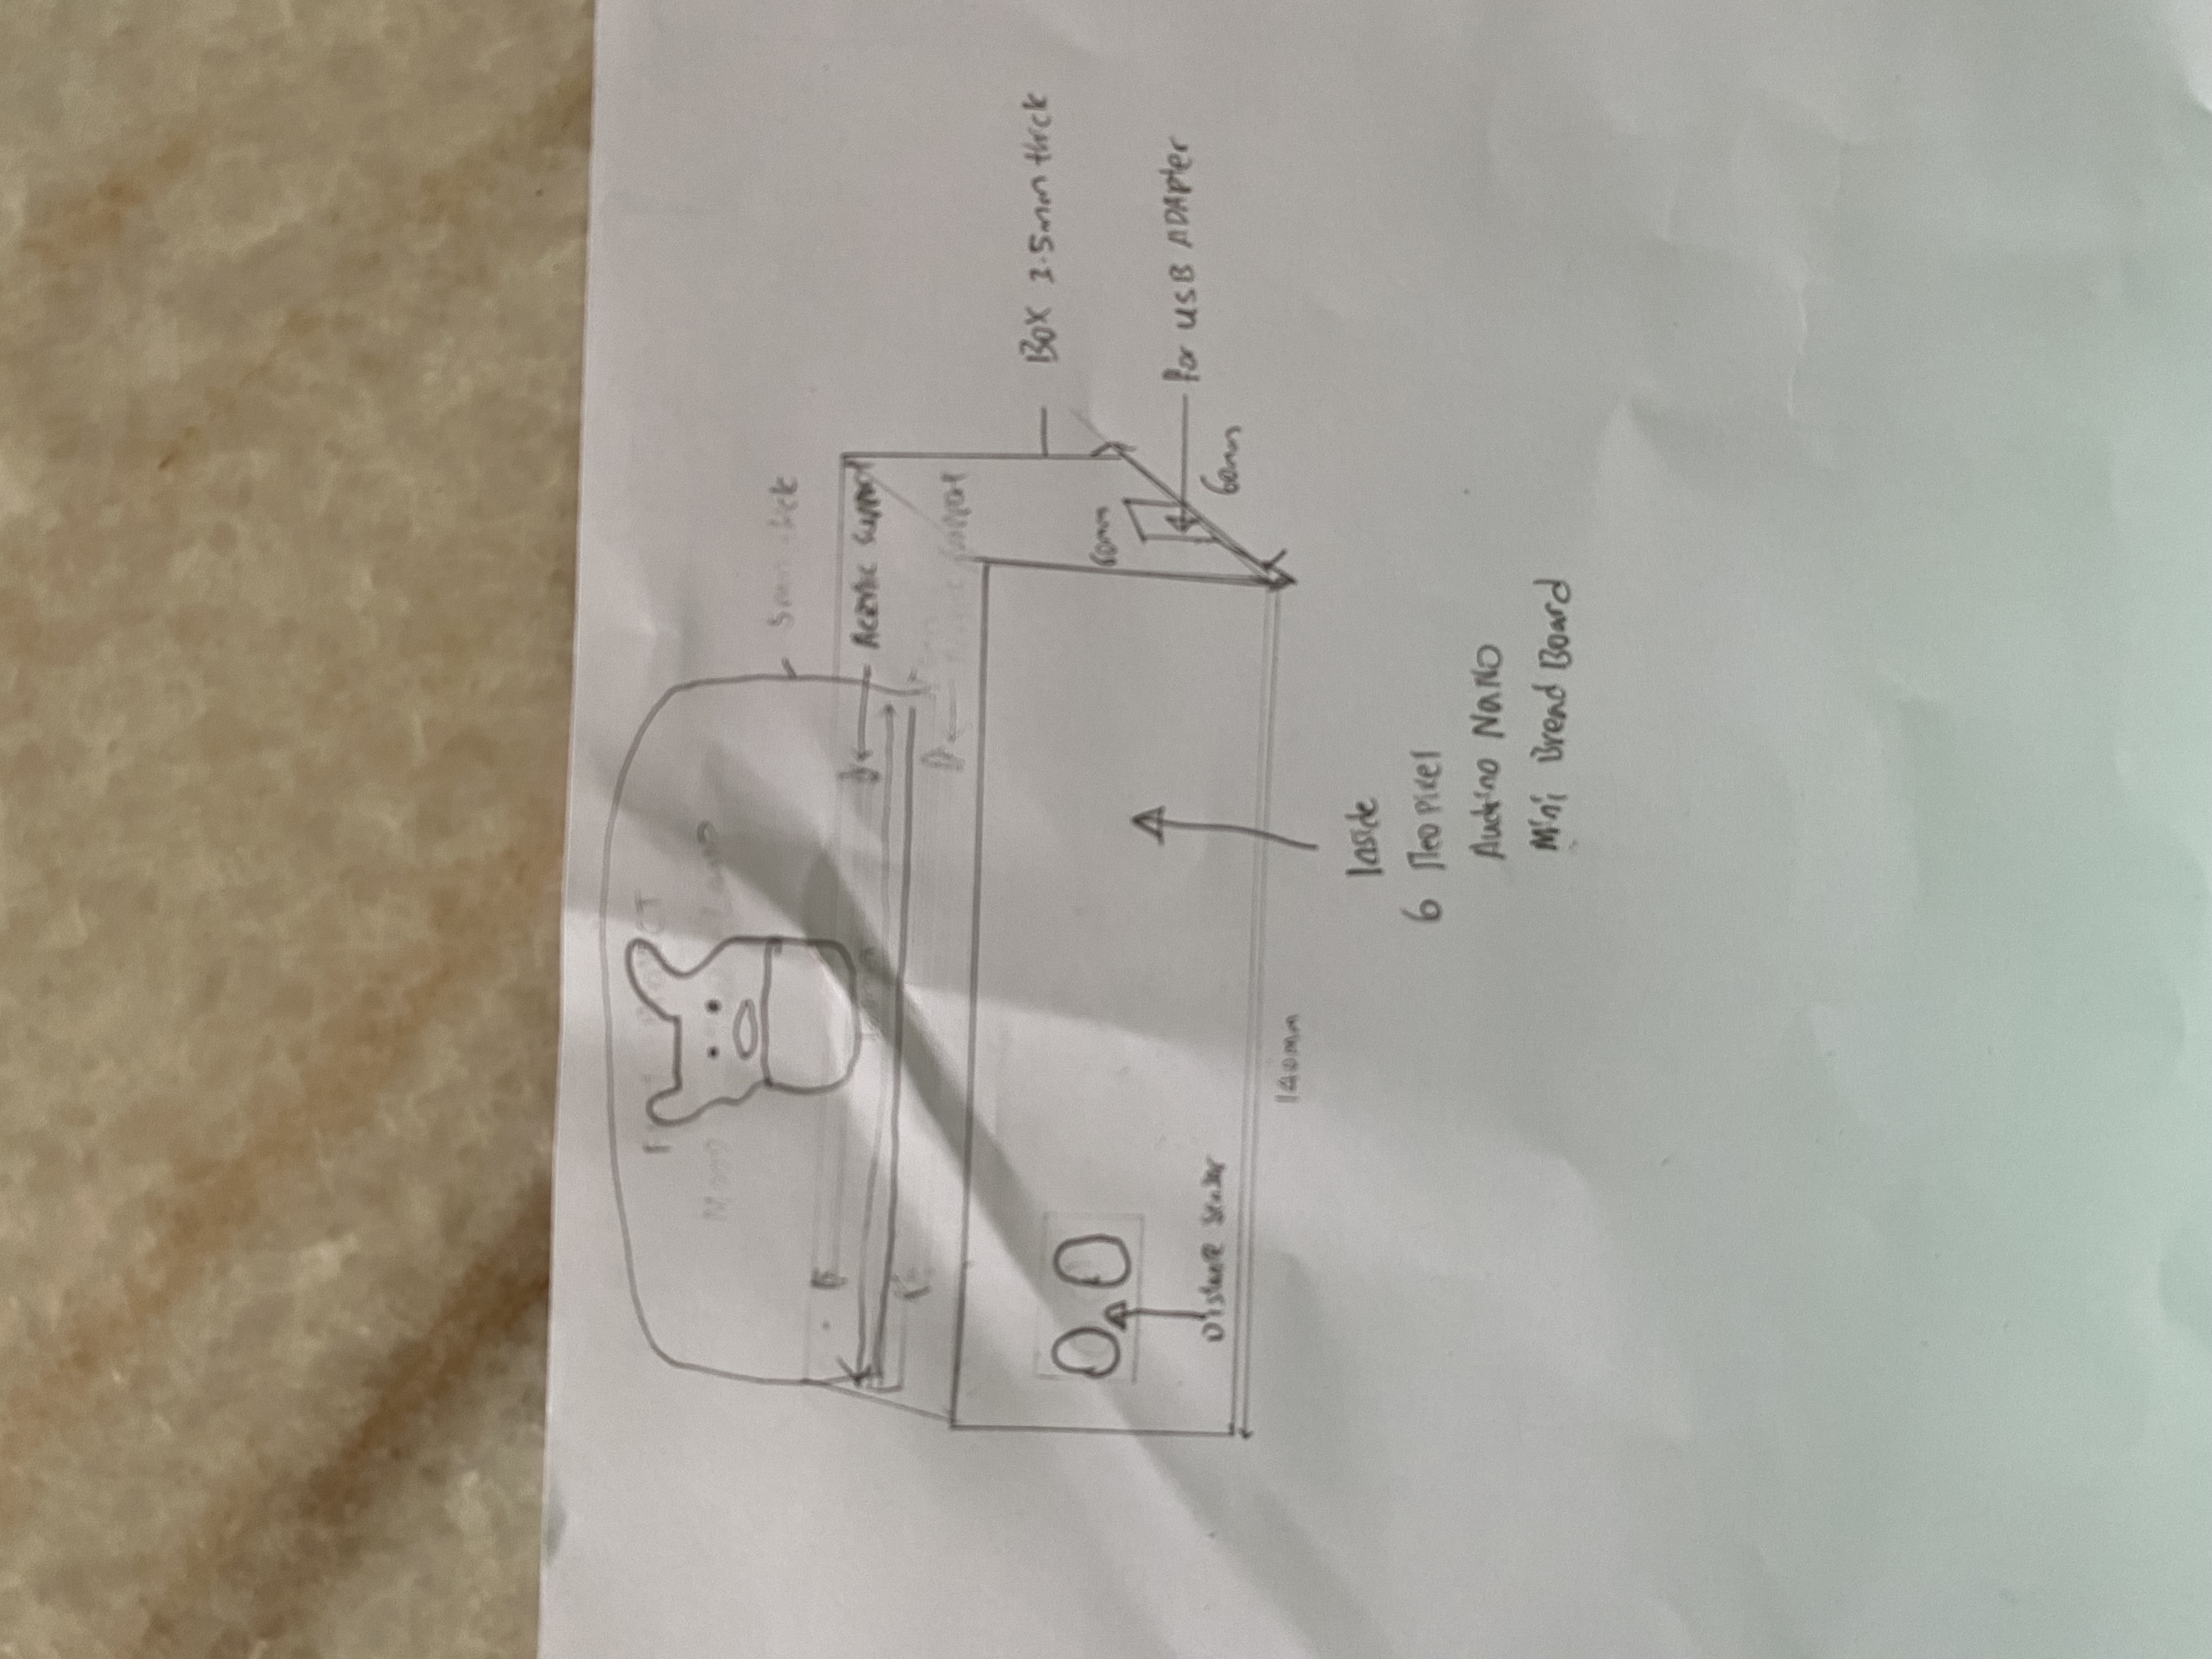 5mm thick
Acrylic support
support
Box 3.5mm thick
60mm
For USB ADAPter
60mm
Distance Sensor
140mm
Inside
6 Neo Pixel
Audrino NaNo
Mini Bread Board